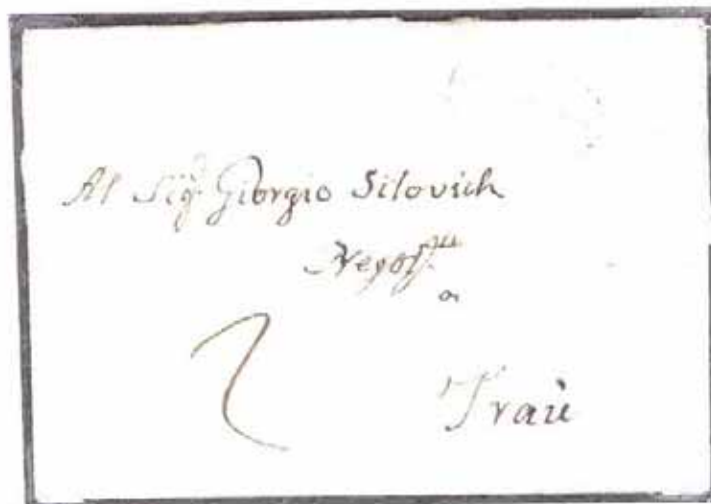 Al Sig.r Giorgio Silovich
Negoz.te
a
2 Traù